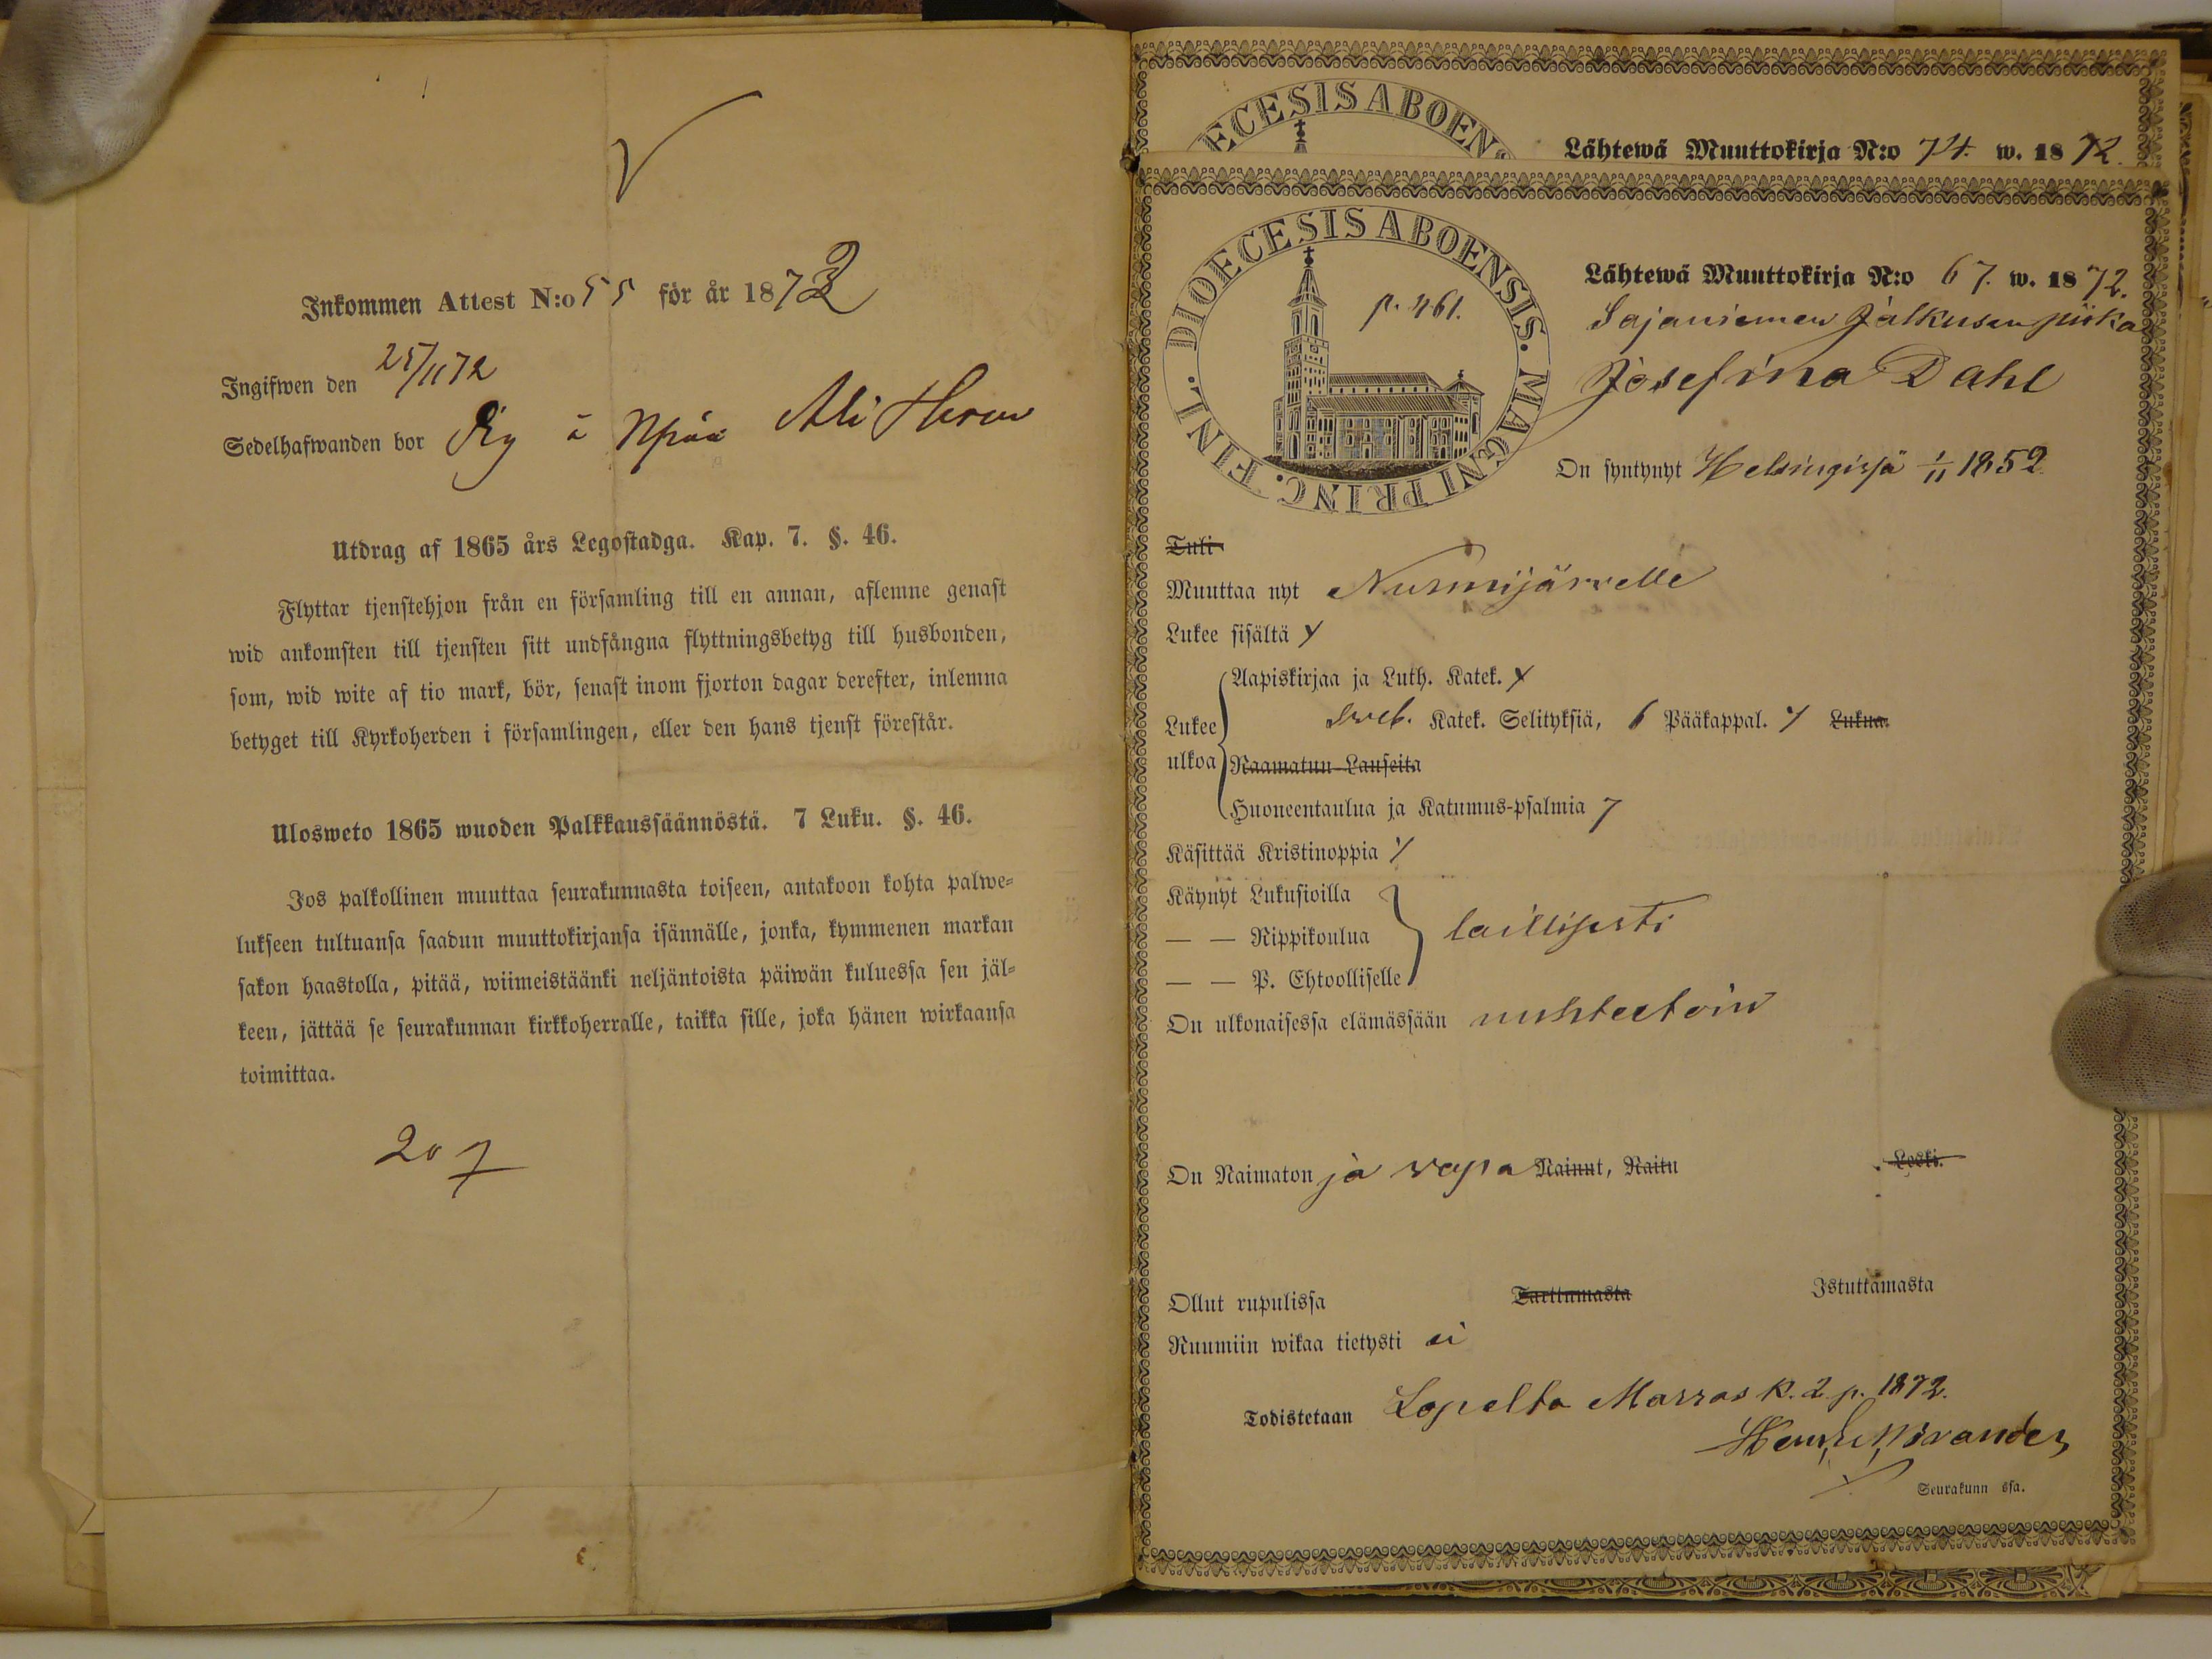 Inkommen Attest N:o 55 för år 1872
Ingifwen den 25/11 72
Sedelhafwanden bor i
Utdrag af 1865 års Legostadga. Kap. 7. §. 46.
Flyttar tjenstehjon från en församling till en annan, aflemne genast
wid ankomsten till tjensten sitt undfångna flyttningsbetyg till husbonden,
som, wid wite af tio mark, bör, senast inom fjorton dagar derefter, inlemna
betyget till Kyrkoherden i församlingen, eller den hans tjenst förestår.
Ulosweto 1865 wuoden Palkkaussäännöstä. 7 Luku. §. 46.
Jos palkollinen muuttaa seurakunnasta toiseen, antakoon kohta palwe=
lukseen tultuansa saadun muuttokirjansa isännälle, jonka, kymmenen markan
sakon haastolla, pitää, wiimeistäänki neljäntoista päiwän kuluessa sen jäl=
keen, jättää se seurakunnan kirkkoherralle, taikka sille, joka hänen wirkaansa
toimittaa.
207
ECESIS ABOEN
Lähtewä Muuttokirja N:o 74. w. 1872.
DIOECESIS ABOENSIS. MAGNI PRINC. FINL.
p. 461.
Lähtewä Muuttokirja N:o 67. w. 1872.
Sajaniemen Jälkusen piika
Josefina Dahl
On syntynyt Helsingissä 1/11 1852
Tuli
Muuttaa nyt Nurmijärwelle
Lukee sisältä
Aapiskirjaa ja Luth. Katek.
Lukee ulkoa
Sweb. Katek. Selityksiä, 6 Pääkappal. Lukua.
Raamatun-Lauseita
Huoneentaulua ja Katumus-psalmia
Käsittää Kristinoppia
Käynyt Lukusioilla
— — Rippikoulua laillisesti
— — P. Ehtoolliselle
On ulkonaisessa elämässään nuhteetoin
On Naimaton ja wapa Nainut, Naitu Leski.
Ollut rupulissa Tarttumasta Istuttamasta
Ruumiin wikaa tietysti ei
Todistetaan Lopelta Marras k. 2 p. 1872.
Seurakunn ssa.